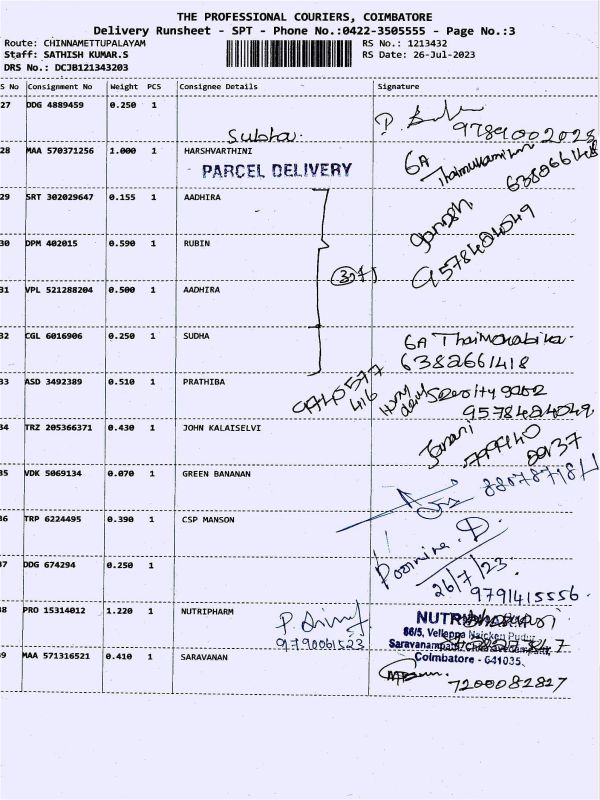 THE PROFESSIONAL COURIERS, COIMBATORE
Delivery Runsheet - SPT - Phone No.:0422-3505555 - Page No.:3
Route: CHINNAMETTUPALAYAM
RS No.: 1213432
Staff: SATHISH KUMAR.S
RS Date: 26-Jul-2023
DRS No.: DCJB121343203
S No Consignment No Weight PCS Consignee Details Signature
27 DDG 4889459 0.250 1
Subha.
9789002028
28 MAA 570371256 1.000 1 HARSHVARTHINI
6A
PARCEL DELIVERY
29 SRT 302029647 0.155 1 AADHIRA
30 DPM 402015 0.590 1 RUBIN
9578424049
31 VPL 521288204 0.500 1 AADHIRA
32 CGL 6016906 0.250 1 SUDHA
6A
6382661418
33 ASD 3492389 0.510 1 PRATHIBA
9578424049
34 TRZ 205366371 0.430 1 JOHN KALAISELVI
Janani
35 VDK 5069134 0.070 1 GREEN BANANAN
36 TRP 6224495 0.390 1 CSP MANSON
Poornima. D.
37 DDG 674294 0.250 1
26/7/23.
9791415556.
38 PRO 15314012 1.220 1 NUTRIPHARM
9790061523
86/5, Velleppa Naicken Pudur,
39 MAA 571316521 0.410 1 SARAVANAN
Coimbatore - 641035.
7200082827